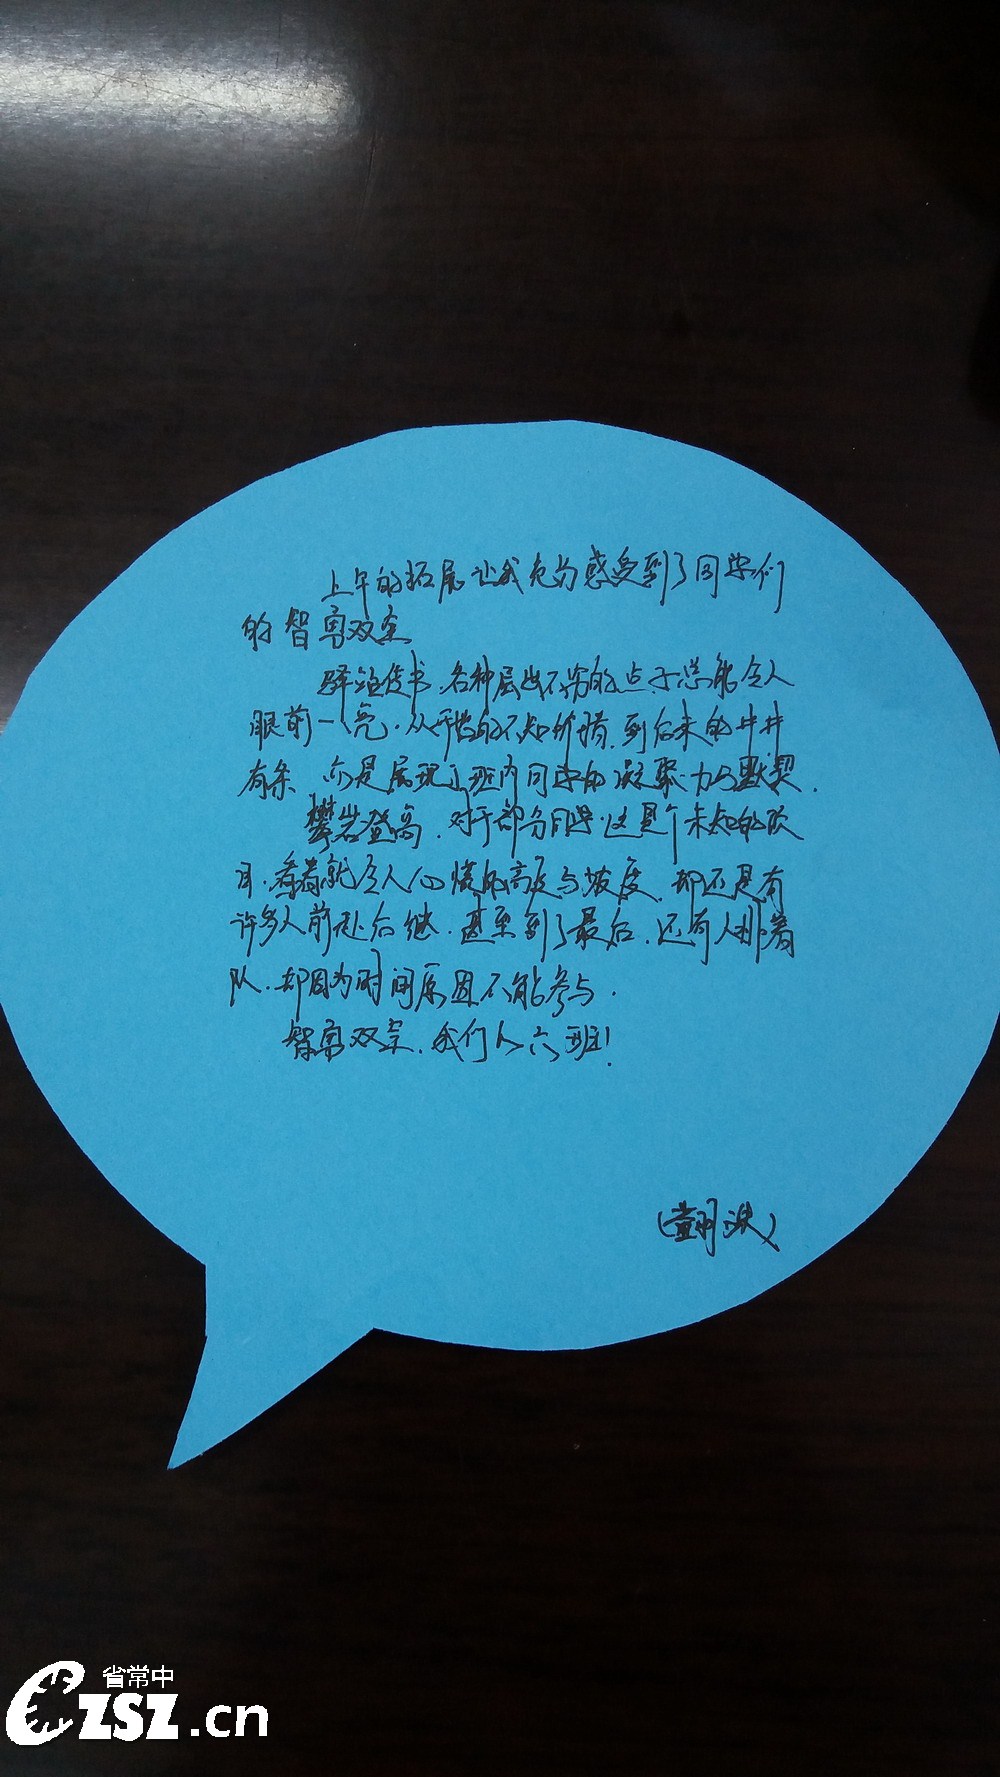 上午的拓展让我充分感受到了同学们
的智勇双全
驿站传书，各种层出不穷的点子总能令人
眼前一亮。从开始的不知所措，到后来的井井
有条，亦是展现了班内同学的凝聚力与默契。
攀岩登高，对于部分同学，这是个未知的项
目，看着就令人心慌的高度与坡度，却还是有
许多人前赴后继，甚至到了最后，还有人排着
队，却因为时间原因不能参与。
智勇双全，我们人六班！
省常中
czsz.cn